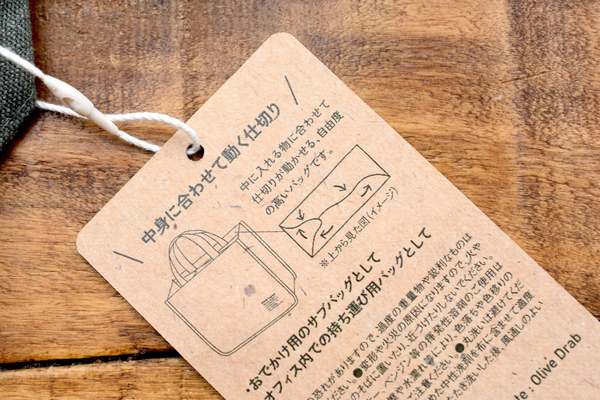 中身に合わせて動く仕切り
中に入れる物に合わせて
仕切りが動かせる、自由度
の高いバッグです。
※上から見た図(イメージ)
・おでかけ用のサブバッグとして
オフィス内での持ち運び用バッグとして
の恐れがありますので、過度の重量物や鋭利なものは
ださい。●変形や火災の原因になりますので、火や
のそばに置いたり、近づけたりしないでください。
ー、ベンジン等の揮発性の溶剤のご使用は
擦や水濡れ等により、色落ちや色移りの
ご注意ください。●丸洗いは避けてくだ
めた中性洗剤を布に含ませて適度
たたき洗いした後、風通しのよい
te : Olive Drab